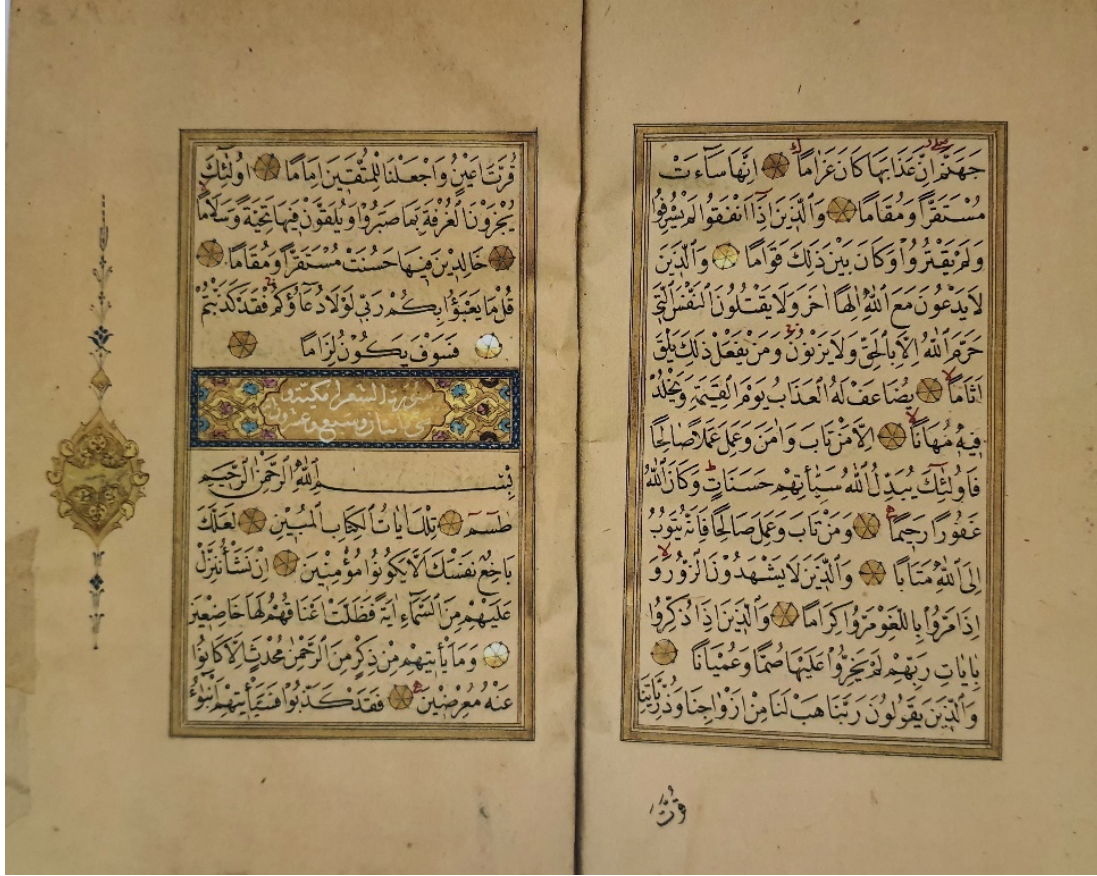 جَهَنَّمَ اِنَّ عَذَابَهَا كَانَ غَرَامًا اِنَّهَا سَآءَتْ
مُسْتَقَرًّا وَمُقَامًا وَالَّذٖينَ اِذَٓا اَنْفَقُوا لَمْ يُسْرِفُوا
وَلَمْ يَقْتُرُوا وَكَانَ بَيْنَ ذٰلِكَ قَوَامًا وَالَّذٖينَ
لَا يَدْعُونَ مَعَ اللّٰهِ اِلٰهًا اٰخَرَ وَلَا يَقْتُلُونَ النَّفْسَ الَّتٖى
حَرَّمَ اللّٰهُ اِلَّا بِالْحَقِّ وَلَا يَزْنُونَ وَمَنْ يَفْعَلْ ذٰلِكَ يَلْقَ
اَثَامًا يُضَاعَفْ لَهُ الْعَذَابُ يَوْمَ الْقِيٰمَةِ وَيَخْلُدْ
فٖيهٖ مُهَانًا اِلَّا مَنْ تَابَ وَاٰمَنَ وَعَمِلَ عَمَلًا صَالِحًا
فَاُولٰٓئِكَ يُبَدِّلُ اللّٰهُ سَيِّاٰتِهِمْ حَسَنَاتٍ وَكَانَ اللّٰهُ
غَفُورًا رَحٖيمًا وَمَنْ تَابَ وَعَمِلَ صَالِحًا فَاِنَّهُ يَتُوبُ
اِلَى اللّٰهِ مَتَابًا وَالَّذٖينَ لَا يَشْهَدُونَ الزُّورَ وَ
اِذَا مَرُّوا بِاللَّغْوِ مَرُّوا كِرَامًا وَالَّذٖينَ اِذَا ذُكِّرُوا
بِاٰيَاتِ رَبِّهِمْ لَمْ يَخِرُّوا عَلَيْهَا صُمًّا وَعُمْيَانًا
وَالَّذٖينَ يَقُولُونَ رَبَّنَا هَبْ لَنَا مِنْ اَزْوَاجِنَا وَذُرِّيَّاتِنَا
قُرَّةَ
قُرَّةَ اَعْيُنٍ وَاجْعَلْنَا لِلْمُتَّقٖينَ اِمَامًا اُولٰٓئِكَ
يُجْزَوْنَ الْغُرْفَةَ بِمَا صَبَرُوا وَيُلَقَّوْنَ فٖيهَا تَحِيَّةً وَسَلَامًا
خَالِدٖينَ فٖيهَا حَسُنَتْ مُسْتَقَرًّا وَمُقَامًا
قُلْ مَا يَعْبَؤُا بِكُمْ رَبّٖى لَوْلَا دُعَٓاؤُكُمْ فَقَدْ كَذَّبْتُمْ
فَسَوْفَ يَكُونُ لِزَامًا
سورة الشعرا مكية و
مائتان وسبع وعشرون
بِسْمِ اللّٰهِ الرَّحْمٰنِ الرَّحٖيمِ
طٰسٓمٓ تِلْكَ اٰيَاتُ الْكِتَابِ الْمُبٖينِ لَعَلَّكَ
بَاخِعٌ نَفْسَكَ اَلَّا يَكُونُوا مُؤْمِنٖينَ اِنْ نَشَأْ نُنَزِّلْ
عَلَيْهِمْ مِنَ السَّمَٓاءِ اٰيَةً فَظَلَّتْ اَعْنَاقُهُمْ لَهَا خَاضِعٖينَ
وَمَا يَأْتٖيهِمْ مِنْ ذِكْرٍ مِنَ الرَّحْمٰنِ مُحْدَثٍ اِلَّا كَانُوا
عَنْهُ مُعْرِضٖينَ فَقَدْ كَذَّبُوا فَسَيَأْتٖيهِمْ اَنْبٰٓؤُا